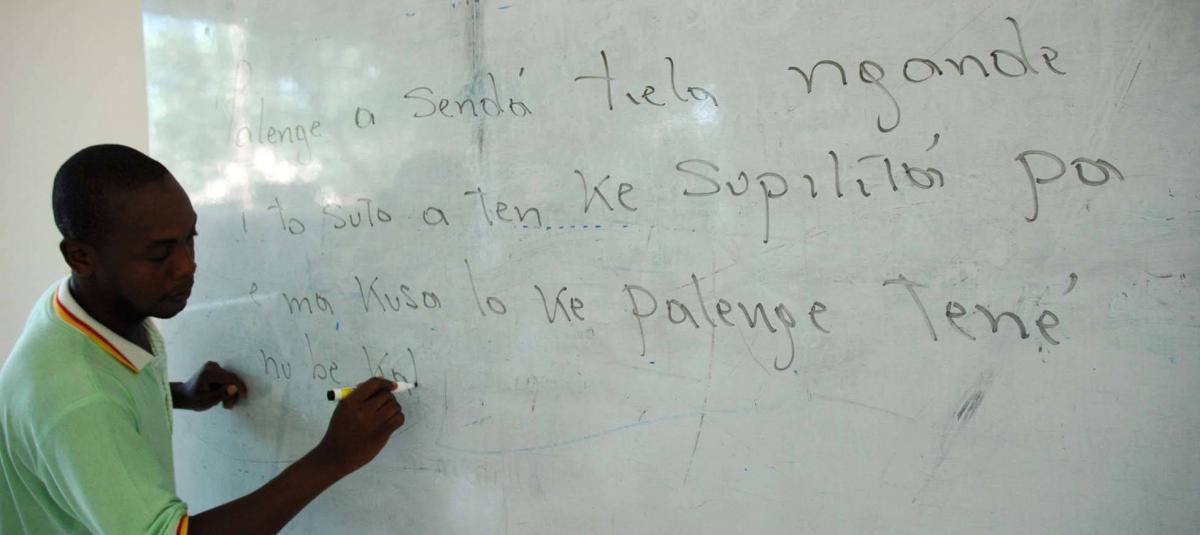 Palenge a sendá tiela ngande
i to suto a ten ke supilitá pa
e ma kusa lo ke palenge tené
nu be